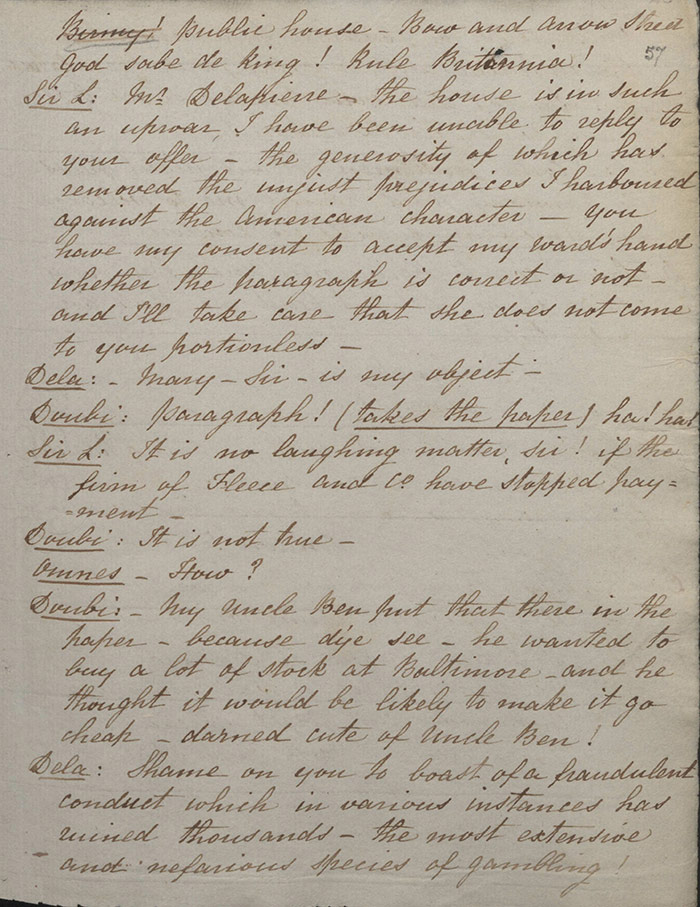 Binny's public house - Bow and arrow Street
God sabe de King! Rule Britannia! 57
Sir L: Mr Delapierre - the house is in such
an uproar, I have been unable to reply to
your offer - the generosity of which has
removed the unjust prejudices I harboured
against the American character - You
have my consent to accept my ward's hand
whether the paragraph is correct or not -
and I'll take care that she does not come
to you portionless -
Dela: - Mary - Sir - is my object -
Doubi: paragraph! (takes the paper) ha! ha!
Sir L: It is no laughing matter, sir! if the
firm of Fleece and Co have stopped pay=
=ment -
Doubi: It is not true -
Omnes - How?
Doubi: - My Uncle Ben put that there in the
paper - because d'ye see - he wanted to
buy a lot of stock at Baltimore - and he
thought it would be likely to make it go
cheap - darned cute of Uncle Ben!
Dela: Shame on you to boast of a fraudulent
conduct which in various instances has
ruined thousands - the most extensive
and nefarious species of gambling!